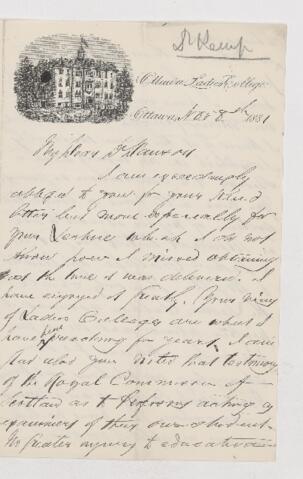 Dr Kemp
Ottawa Ladies College
Ottawa, Nov 8th 1881
My dear Dr Dawson
I am exceedingly
obliged to you for your kind
letter but more especially for
your Lecture which I do not
know how I missed obtaining
at the time it was delivered. I
have enjoyed it greatly. Your views
of Ladies Colleges are what I
have been for years. I am
glad also you that testimony
of the Royal Commission of
Scotland as to Professors acting as
examiners of their own students.
No greater injury to education